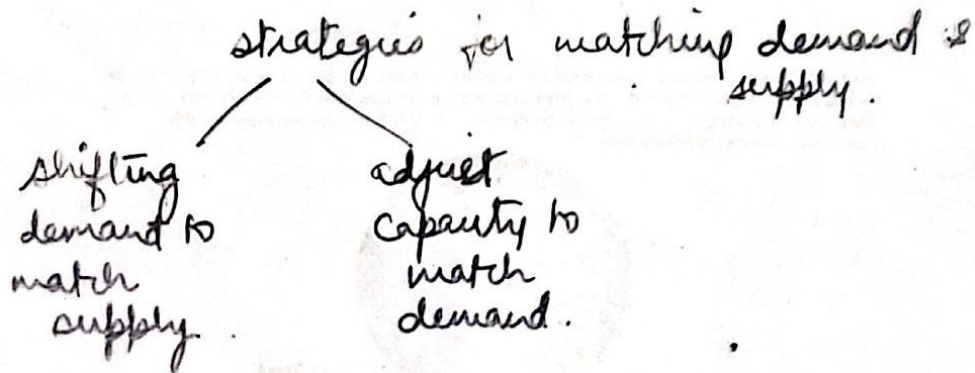 strategies for matching demand &
supply.
shifting
demand to
match
supply.
adjust
capacity to
match
demand.